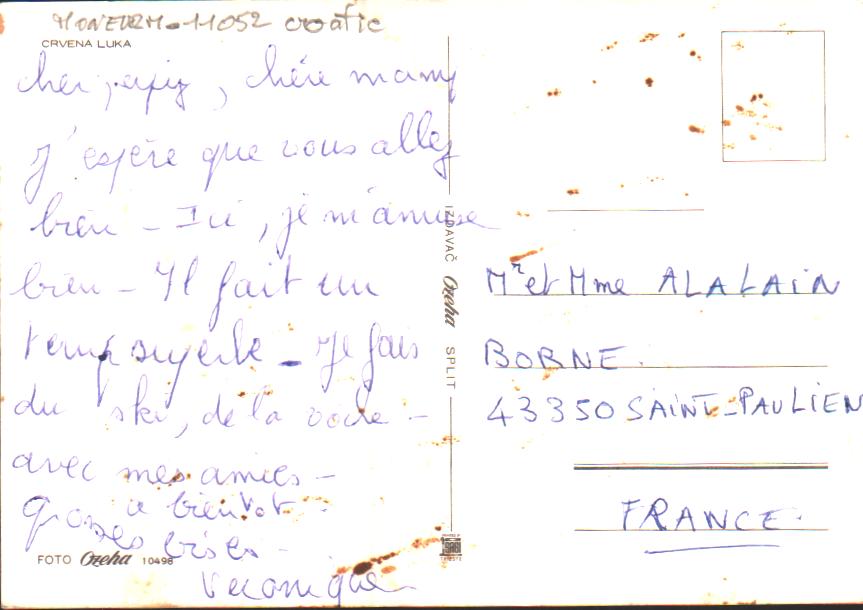 MONEDZM-11052 croatie
CRVENA LUKA
cher papy, chère mamy
j'espère que vous allez
bien - Ici, je m'amuse
bien - Il fait un
temps superbe - Je fais
du ski, de la voile -
avec mes amies -
a bientot
grosses bises -
Veronique
FOTO Ozeha 10498
IZDAVAČ Ozeha SPLIT
Mr et Mme ALALAIN
BORNE.
43350 SAINT-PAULIEN
FRANCE.